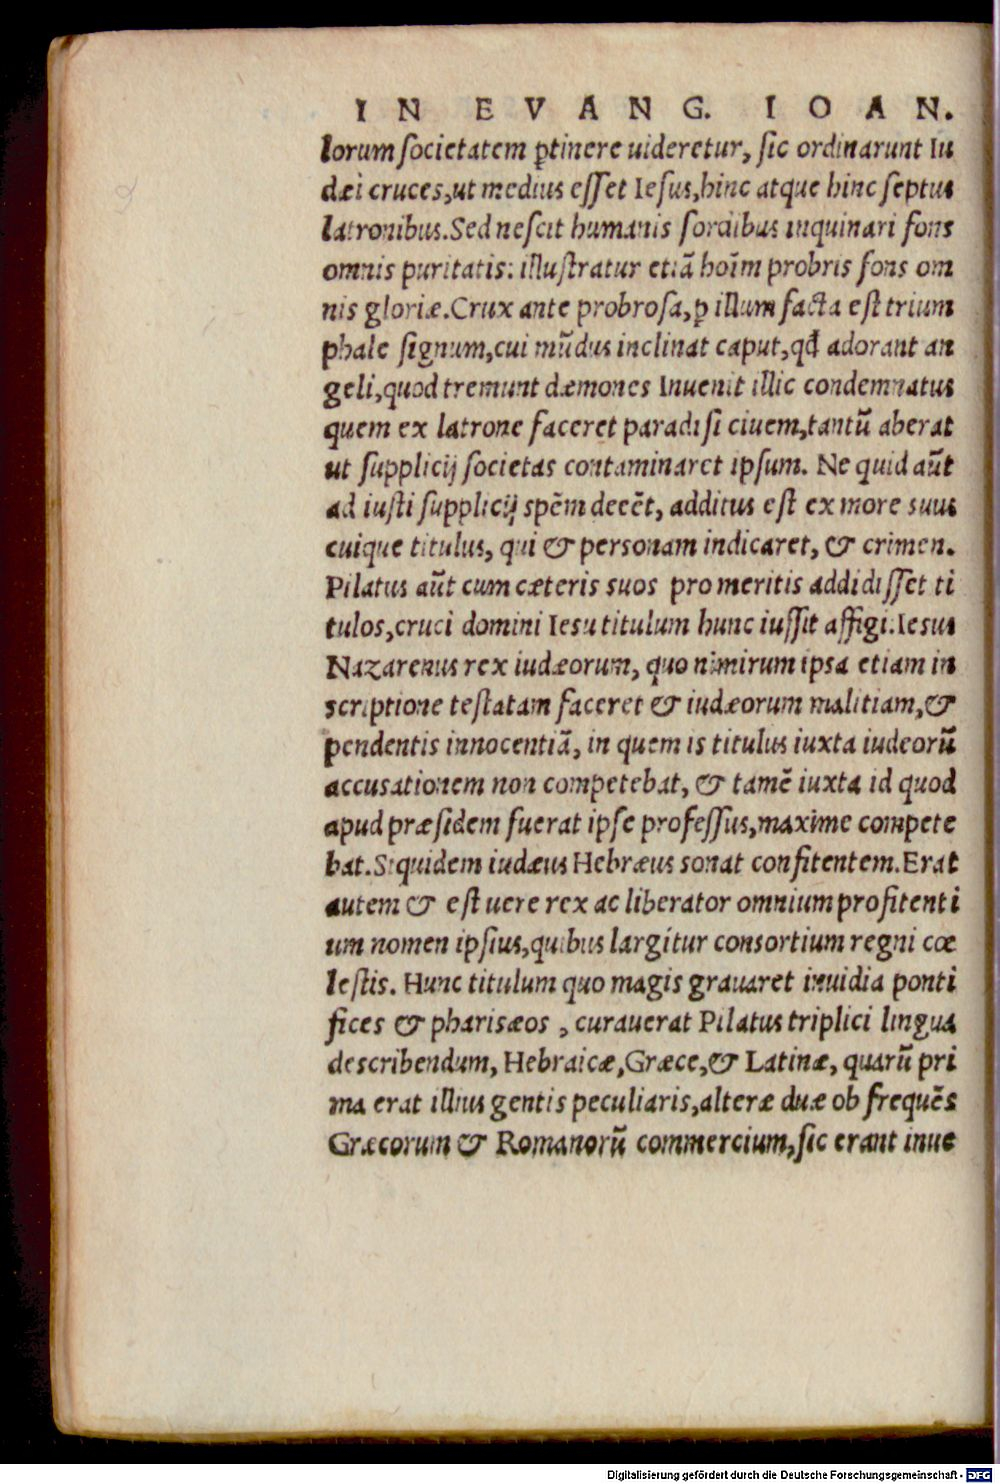 IN EVANG. IOAN.
lorum societatem ꝑtinere uideretur, sic ordinarunt Iu
dæi cruces,ut medius esset Iesus,hinc atque hinc septus
latronibus.Sed nescit humanis sordibus inquinari fons
omnis puritatis: illustratur etiã hoĩm probris fons om
nis gloriæ.Crux ante probrosa,ꝑ illum facta est trium
phale signum,cui mũdus inclinat caput,qđ adorant an
geli,quod tremunt dæmones Inuenit illic condemnatus
quem ex latrone faceret paradisi ciuem,tantũ aberat
ut supplicij societas contaminaret ipsum. Ne quid aũt
ad iusti supplicij spẽm deeẽt, additus est ex more suus
cuique titulus, qui & personam indicaret, & crimen.
Pilatus aũt cum cæteris suos pro meritis addidisset ti
tulos,cruci domini Iesu titulum hunc iussit affigi.Iesus
Nazarenus rex iudæorum, quo nimirum ipsa etiam in
scriptione testatam faceret & iudæorum malitiam,&
pendentis innocentiã, in quem is titulus iuxta iudeorũ
accusationem non competebat, & tamẽ iuxta id quod
apud præsidem fuerat ipse professus,maxime compete
bat.Siquidem iudæus Hebræus sonat confitentem.Erat
autem & est uere rex ac liberator omnium profitenti
um nomen ipsius,quibus largitur consortium regni cœ
lestis. Hunc titulum quo magis grauaret inuidia ponti
fices & pharisæos , curauerat Pilatus triplici lingua
describendum, Hebraicæ,Græce,& Latinæ, quarũ pri
ma erat illius gentis peculiaris,alteræ duæ ob frequẽs
Græcorum & Romanorũ commercium,sic erant inue
Digitalisierung gefördert durch die Deutsche Forschungsgemeinschaft - DFG